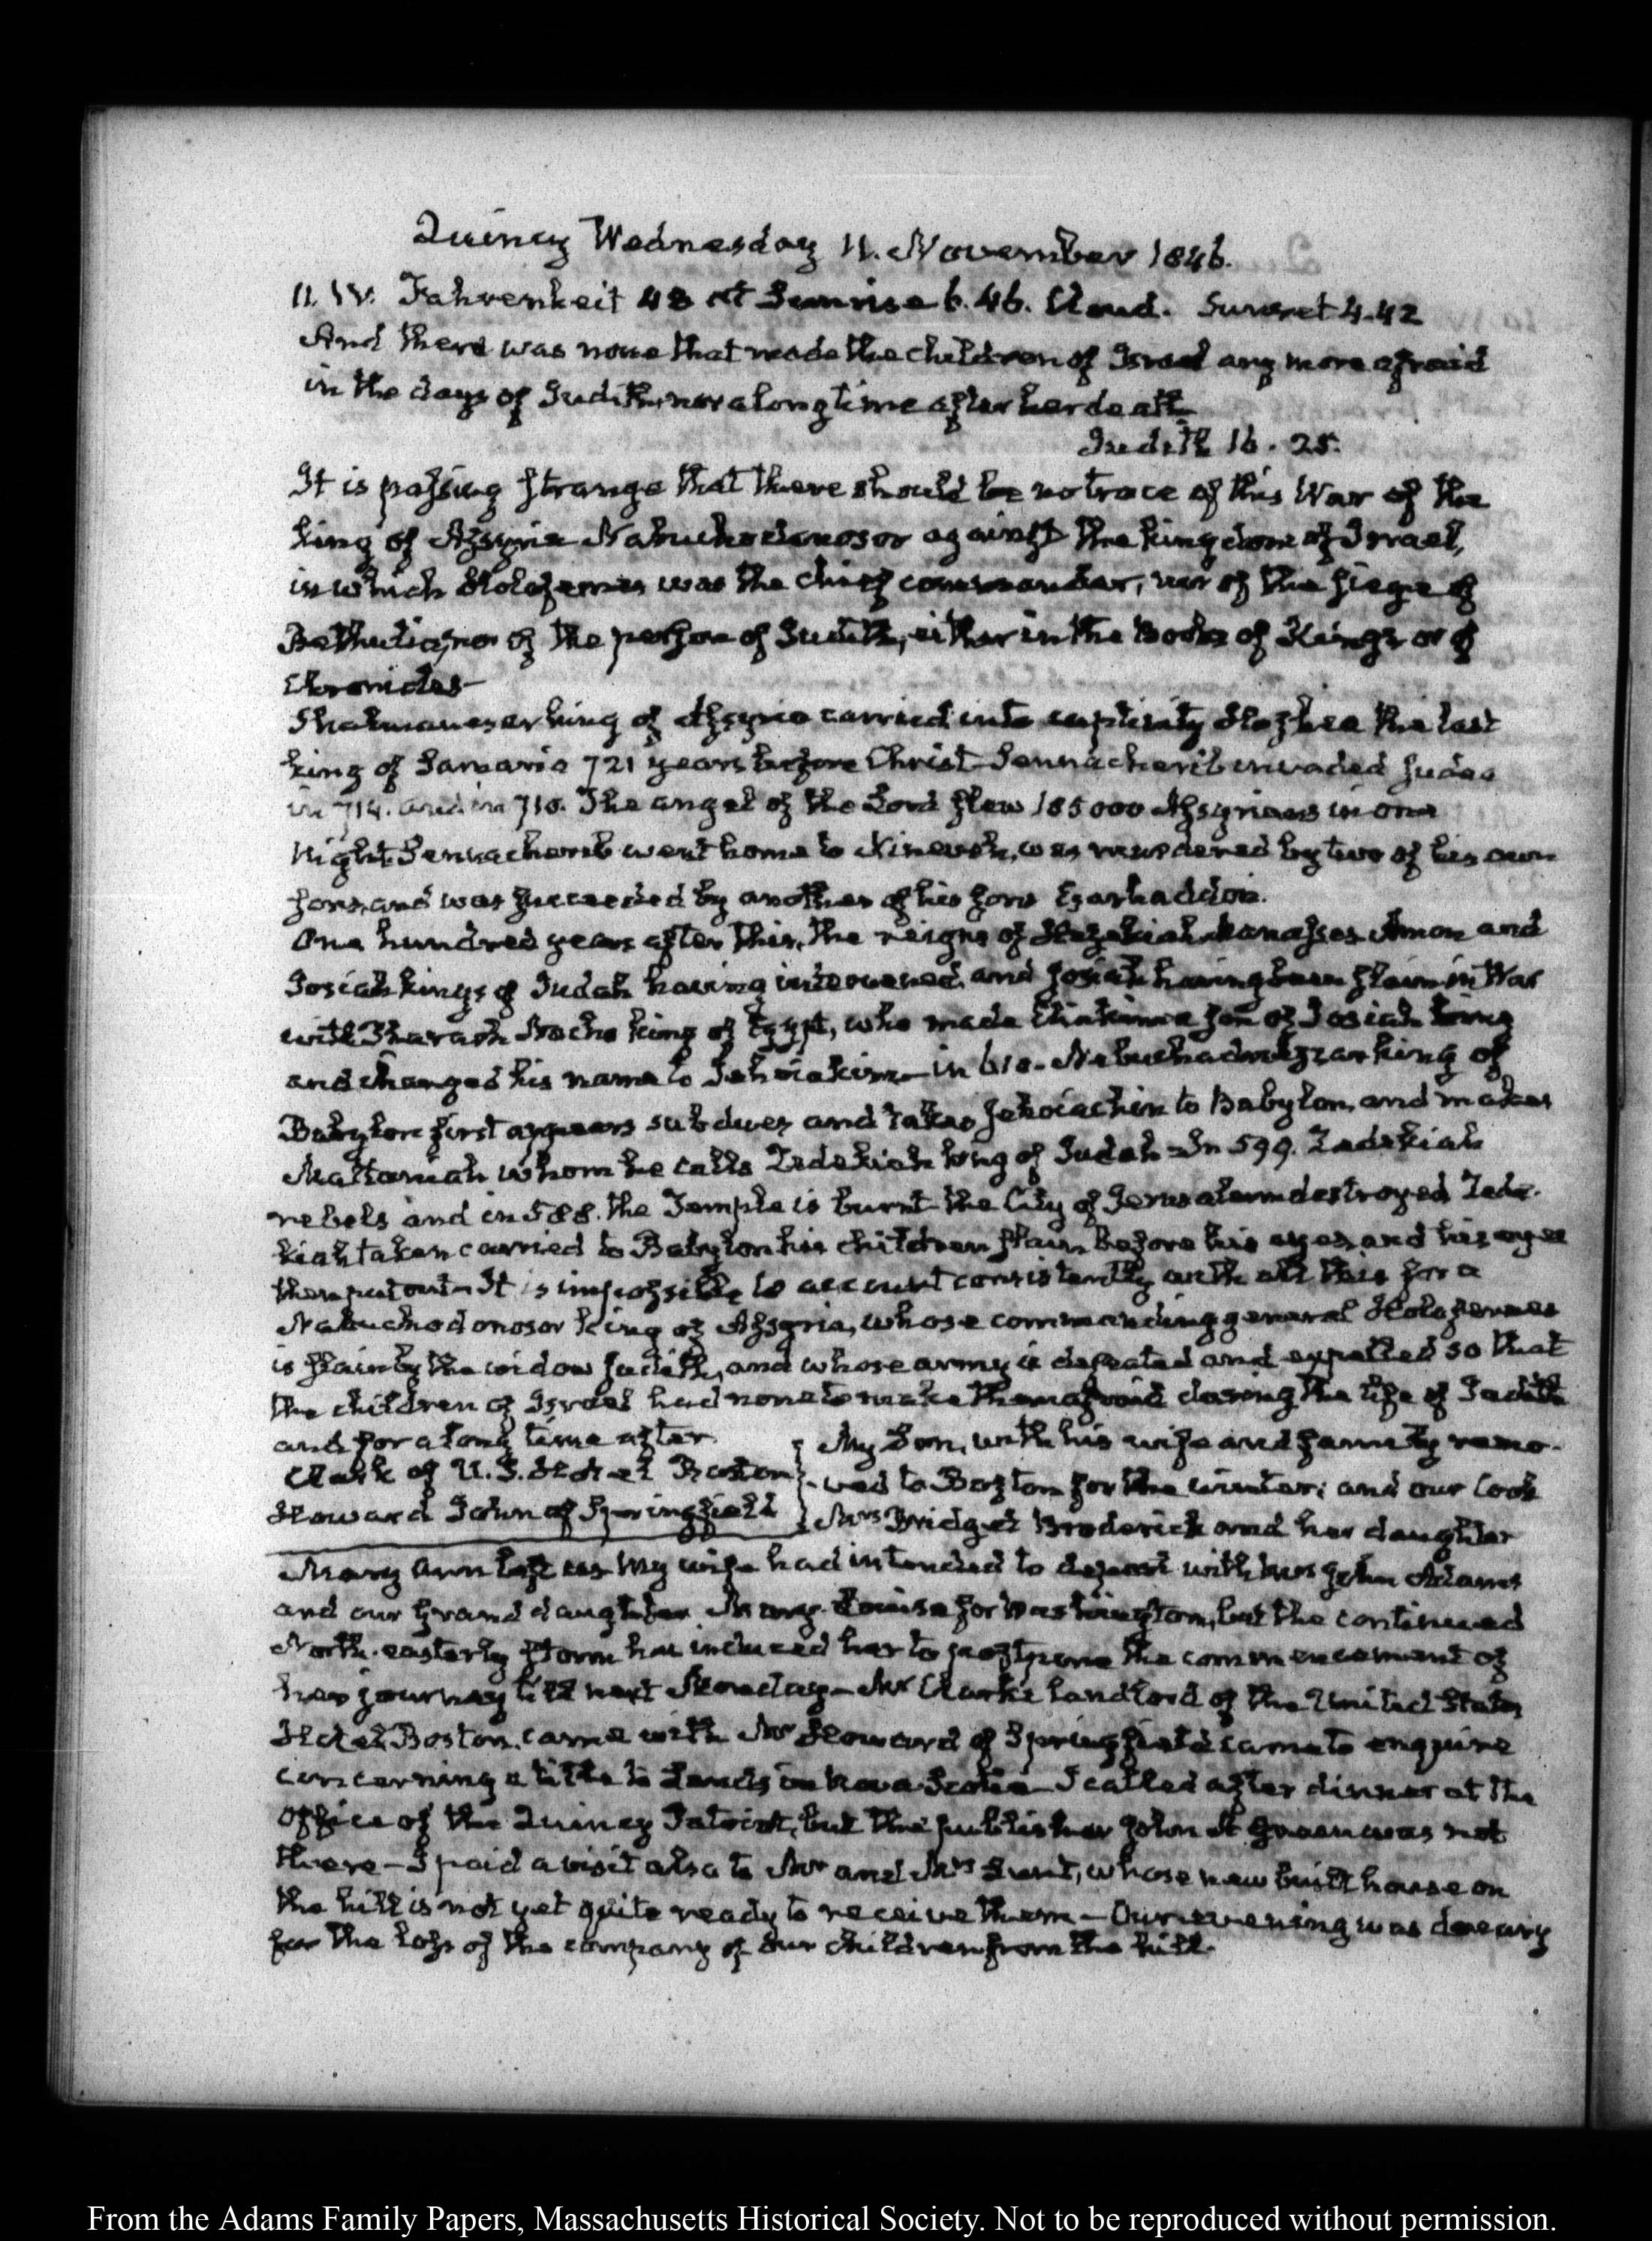 Quincy Wednesday 11. November 1846.
11. IV. Fahrenheit 48 at Sunrise 6.46. Cloud. Sunset 4.42
And there was none that made the children of Israel any more afraid
in the days of Judith, nor a long time after her death
Judith 16. 25.
It is passing strange that there should be no trace of this War of the
king of Assyria Nabuchodonosor against the kingdom of Israel,
in which Holofernes was the chief commander, nor of the siege of
Bethulia, nor of the person of Judith, either in the Books of Kings or of
Chronicles—
Shalmaneser king of Assyria carried into captivity Hoshea the last
king of Samaria 721 years before Christ Sennacherib invaded Judea
in 714. and in 710. The angel of the Lord slew 185000 Assyrians in one
Night Sennacherib went home to Nineveh, was murdered by two of his own
sons, and was succeeded by another of his sons Esarhaddon.
One hundred years after this, the reigns of Hezekiah Manasses Amon and
Josiah kings of Judah having intervened, and Josiah having been slain in War
with Pharaoh Necho king of Egypt, who made Eliakim a son of Josiah king
and changed his name to Jehoiakim— in 610. Nebuchadnezzar king of
Babylon first appears subdues and takes Jehoiachin to Babylon, and makes
Mattaniah whom he calls Zedekiah king of Judah— In 599. Zedekiah
rebels and in 588. the Temple is burnt the City of Jerusalem destroyed Zede-
kiah taken carried to Babylon his children slain before his eyes and his eyes
then put out— It is impossible to account consistently with all this for a
Nabuchodonosor king of Assyria, whose commanding general Holofernes
is slain by the widow Judith, and whose army is defeated and expelled so that
the children of Israel had none to make them afraid during the life of Judith
and for a long time after.
Clark of U. S. Hotel Boston
Howard John of Springfield
My Son, with his wife and family remo-
ved to Boston for the winter; and our Cook
Mrs Bridget Broderick and her daughter
Mary Ann left us— My wife had intended to depart with Mrs John Adams
and our Grand daughter Mary Louisa for Washington, but the continued
North-easterly storm has induced her to postpone the commencement of
her journey till next Monday— Mr Clark the landlord of the United States
Hotel Boston, came with Mr Howard of Springfield came to enquire
concerning a title to Lands in Nova Scotia— I called after dinner at the
Office of the Quincy Patriot, but the publisher John A Green was not
there— I paid a visit also to Mr and Mrs Lunt, whose new built house on
the hill is not yet quite ready to receive them— Our evening was dreary
for the loss of the company of our children from the hill.
From the Adams Family Papers, Massachusetts Historical Society. Not to be reproduced without permission.